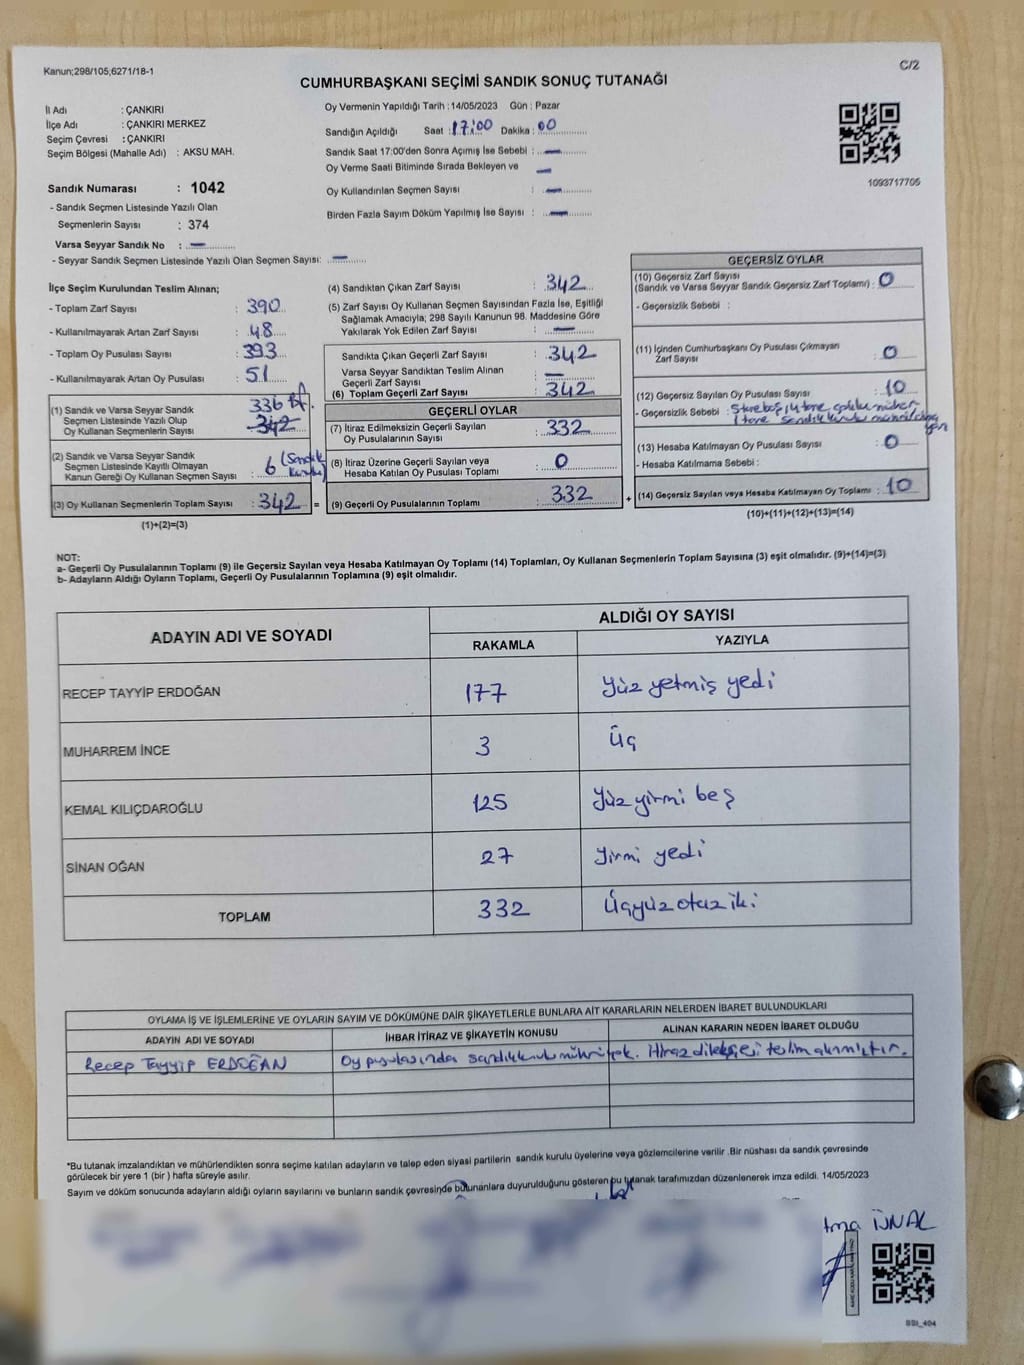 Kanun;298/105,6271/18-1
C/2
CUMHURBAŞKANI SEÇİMİ SANDIK SONUÇ TUTANAĞI
İl Adı : ÇANKIRI
İlçe Adı : ÇANKIRI MERKEZ
Seçim Çevresi : ÇANKIRI
Seçim Bölgesi (Mahalle Adı) : AKSU MAH.
Sandık Numarası : 1042
- Sandık Seçmen Listesinde Yazılı Olan
Seçmenlerin Sayısı : 374
Varsa Seyyar Sandık No : —
- Seyyar Sandık Seçmen Listesinde Yazılı Olan Seçmen Sayısı: —
Oy Vermenin Yapıldığı Tarih : 14/05/2023 Gün : Pazar
Sandığın Açıldığı Saat : 17:00 Dakika : 00
Sandık Saat 17:00'den Sonra Açımış İse Sebebi : —
Oy Verme Saati Bitiminde Sırada Bekleyen ve —
Oy Kullandırılan Seçmen Sayısı : —
Birden Fazla Sayım Döküm Yapılmış İse Sayısı : —
1093717705
İlçe Seçim Kurulundan Teslim Alınan;
- Toplam Zarf Sayısı : 390
- Kullanılmayarak Artan Zarf Sayısı : 48
- Toplam Oy Pusulası Sayısı : 393
- Kullanılmayarak Artan Oy Pusulası : 51
336
(1) Sandık ve Varsa Seyyar Sandık
Seçmen Listesinde Yazılı Olup : 342
Oy Kullanan Seçmenlerin Sayısı
(2) Sandık ve Varsa Seyyar Sandık
Seçmen Listesinde Kayıtlı Olmayan : 6 (Sandık
Kanun Gereği Oy Kullanan Seçmen Sayısı Kurulu)
(3) Oy Kullanan Seçmenlerin Toplam Sayısı : 342 =
(1)+(2)=(3)
(4) Sandıktan Çıkan Zarf Sayısı : 342
(5) Zarf Sayısı Oy Kullanan Seçmen Sayısından Fazla İse, Eşitliği
Sağlamak Amacıyla; 298 Sayılı Kanunun 98. Maddesine Göre
Yakılarak Yok Edilen Zarf Sayısı : —
Sandıkta Çıkan Geçerli Zarf Sayısı : 342
Varsa Seyyar Sandıktan Teslim Alınan
Geçerli Zarf Sayısı : —
(6) Toplam Geçerli Zarf Sayısı : 342
GEÇERLİ OYLAR
(7) İtiraz Edilmeksizin Geçerli Sayılan
Oy Pusulalarının Sayısı : 332
(8) İtiraz Üzerine Geçerli Sayılan veya
Hesaba Katılan Oy Pusulası Toplamı : 0
(9) Geçerli Oy Pusulalarının Toplamı : 332 +
GEÇERSİZ OYLAR
(10) Geçersiz Zarf Sayısı
(Sandık ve Varsa Seyyar Sandık Geçersiz Zarf Toplamı) : 0
- Geçersizlik Sebebi :
(11) İçinden Cumhurbaşkanı Oy Pusulası Çıkmayan
Zarf Sayısı : 0
(12) Geçersiz Sayılan Oy Pusulası Sayısı : 10
- Geçersizlik Sebebi :
(13) Hesaba Katılmayan Oy Pusulası Sayısı : 0
- Hesaba Katılmama Sebebi :
(14) Geçersiz Sayılan veya Hesaba Katılmayan Oy Toplamı : 10
(10)+(11)+(12)+(13)=(14)
NOT:
a- Geçerli Oy Pusulalarının Toplamı (9) ile Geçersiz Sayılan veya Hesaba Katılmayan Oy Toplamı (14) Toplamları, Oy Kullanan Seçmenlerin Toplam Sayısına (3) eşit olmalıdır. (9)+(14)=(3)
b- Adayların Aldığı Oyların Toplamı, Geçerli Oy Pusulalarının Toplamına (9) eşit olmalıdır.
ADAYIN ADI VE SOYADI
ALDIĞI OY SAYISI
RAKAMLA YAZIYLA
RECEP TAYYİP ERDOĞAN 177 Yüz yetmiş yedi
MUHARREM İNCE 3 Üç
KEMAL KILIÇDAROĞLU 125 Yüz yirmi beş
SİNAN OĞAN 27 Yirmi yedi
TOPLAM 332 Üçyüz otuz iki
OYLAMA İŞ VE İŞLEMLERİNE VE OYLARIN SAYIM VE DÖKÜMÜNE DAİR ŞİKAYETLERLE BUNLARA AİT KARARLARIN NELERDEN İBARET BULUNDUKLARI
ADAYIN ADI VE SOYADI İHBAR İTİRAZ VE ŞİKAYETİN KONUSU ALINAN KARARIN NEDEN İBARET OLDUĞU
Recep Tayyip ERDOĞAN Oy pusulasında sandık kurulu mührü yok. İtiraz dilekçesi teslim alınmıştır.
*Bu tutanak imzalandıktan ve mühürlendikten sonra seçime katılan adayların ve talep eden siyasi partilerin sandık kurulu üyelerine veya gözlemcilerine verilir .Bir nüshası da sandık çevresinde
görülecek bir yere 1 (bir ) hafta süreyle asılır.
Sayım ve döküm sonucunda adayların aldığı oyların sayılarını ve bunların sandık çevresinde bulunanlara duyurulduğunu gösteren bu tutanak tarafımızdan düzenlenerek imza edildi. 14/05/2023
tma ÜNAL
BSI_404